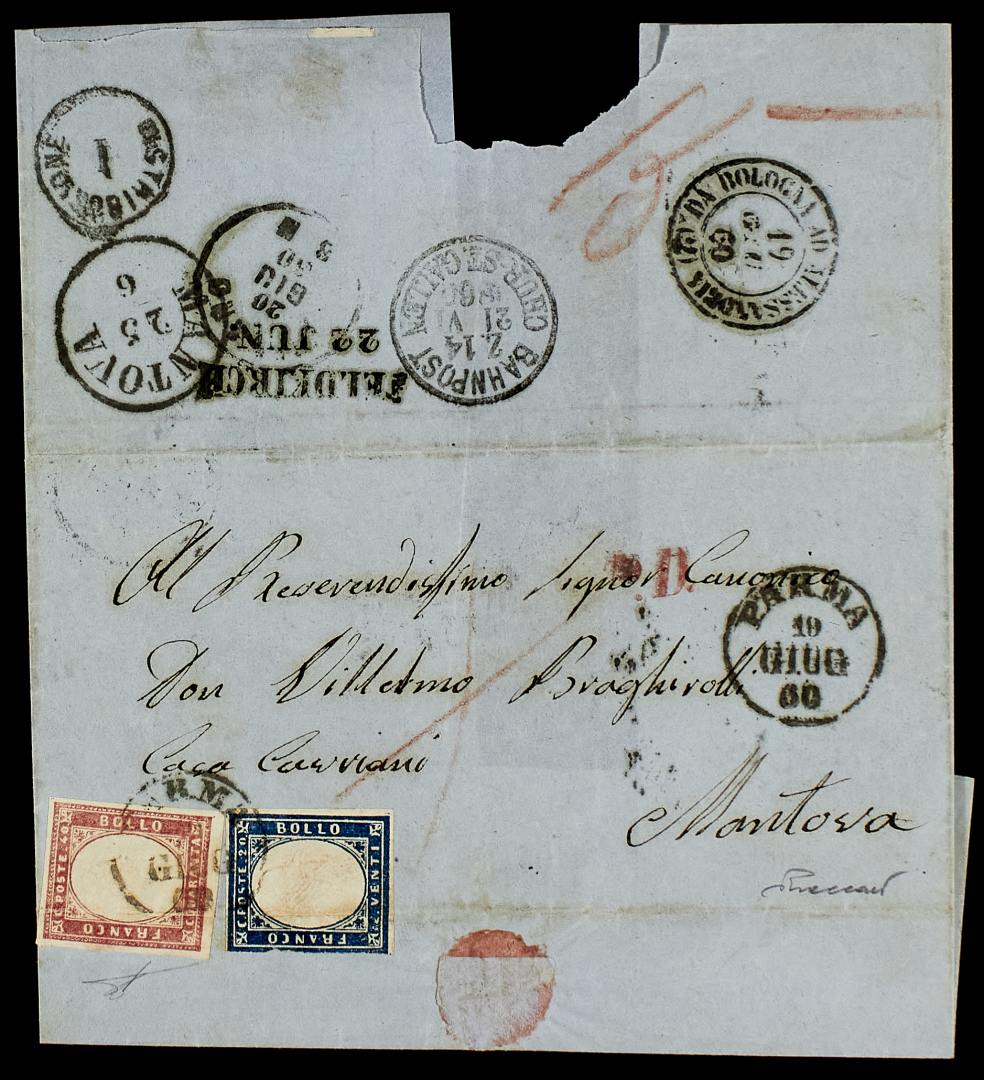 DISTRIBUZIONE
1
MANTOVA
25
6
20
GIU
FELDKIRCH
22 JUN
BAHNPOST
Z. 14
21 VI
60
CHUR-ST GALLEN
DA BOLOGNA AD ALESSANDRIA
19
GIU
60
Al Reverendissimo Signor Canonico
P.D.
Don Villelmo Braghirolli
PARMA
19
GIUG
60
Casa Cavriani
Mantova
PARMA
GIUG
60
BOLLO
C. POSTE 40
C. QUARANTA
FRANCO
BOLLO
C. POSTE 20
C. VENTI
FRANCO